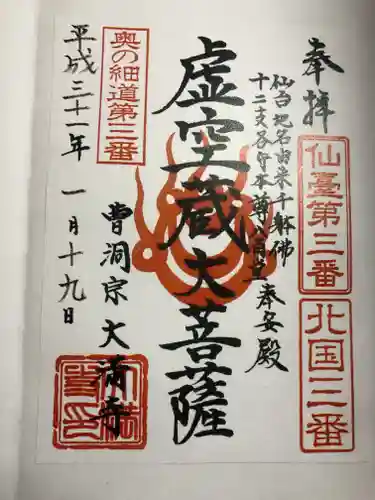 奉拝
仙臺第三番
北国三番
仙台地名由来千躰佛
十二支各守本尊八角堂奉安殿
虚空蔵大菩薩
奥の細道第三番
曹洞宗大満寺
平成三十一年一月十九日